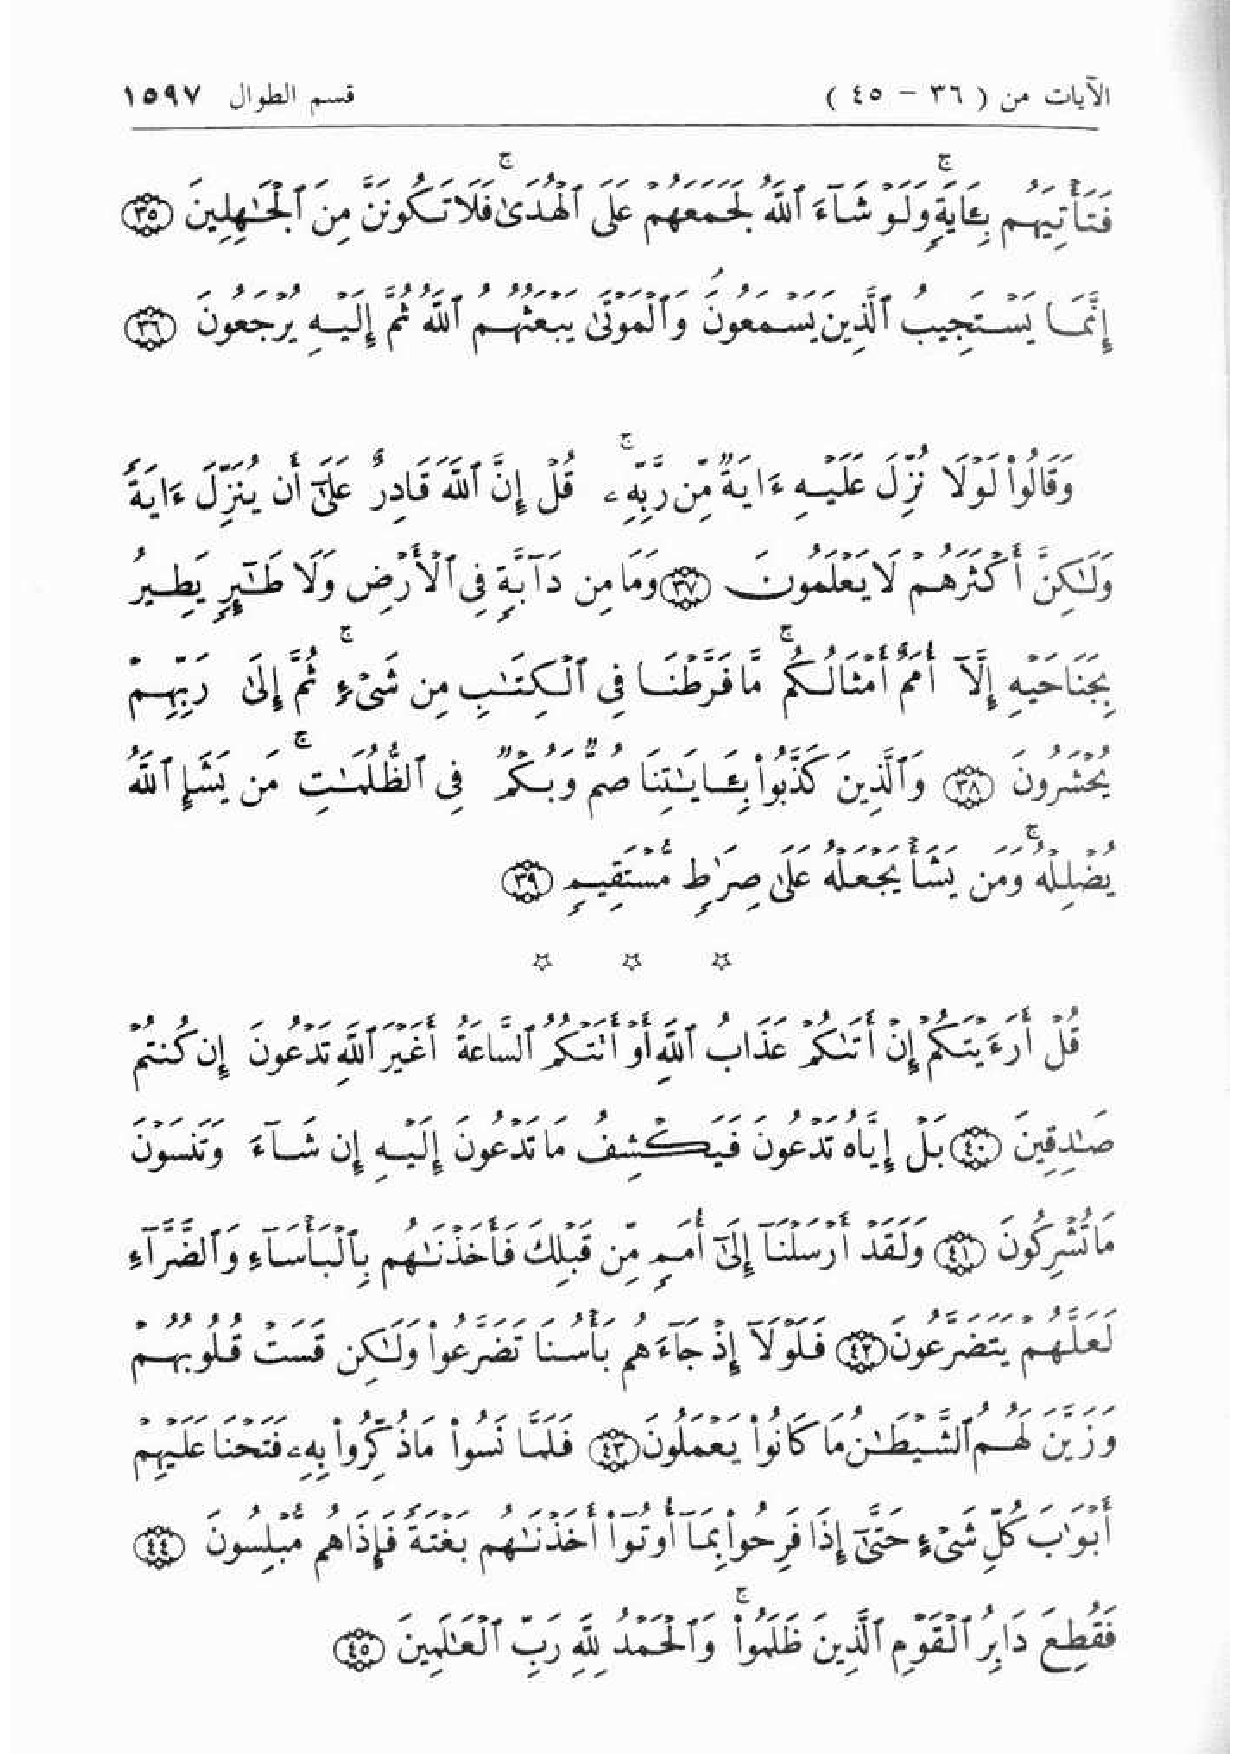 الآيات من ( ٣٦ - ٤٥ )
قسم الطوال ١٥٩٧
فَتَأْتِيَهُم بِـَٔايَةٍۚ وَلَوْ شَآءَ ٱللَّهُ لَجَمَعَهُمْ عَلَى ٱلْهُدَىٰۚ فَلَا تَكُونَنَّ مِنَ ٱلْجَٰهِلِينَ ٣٥
إِنَّمَا يَسْتَجِيبُ ٱلَّذِينَ يَسْمَعُونَۘ وَٱلْمَوْتَىٰ يَبْعَثُهُمُ ٱللَّهُ ثُمَّ إِلَيْهِ يُرْجَعُونَ ٣٦
وَقَالُوا۟ لَوْلَا نُزِّلَ عَلَيْهِ ءَايَةٌ مِّن رَّبِّهِۦۚ قُلْ إِنَّ ٱللَّهَ قَادِرٌ عَلَىٰٓ أَن يُنَزِّلَ ءَايَةً
وَلَٰكِنَّ أَكْثَرَهُمْ لَا يَعْلَمُونَ ٣٧ وَمَا مِن دَآبَّةٍ فِى ٱلْأَرْضِ وَلَا طَٰٓئِرٍ يَطِيرُ
بِجَنَاحَيْهِ إِلَّآ أُمَمٌ أَمْثَالُكُمۚ مَّا فَرَّطْنَا فِى ٱلْكِتَٰبِ مِن شَىْءٍۚ ثُمَّ إِلَىٰ رَبِّهِمْ
يُحْشَرُونَ ٣٨ وَٱلَّذِينَ كَذَّبُوا۟ بِـَٔايَٰتِنَا صُمٌّ وَبُكْمٌ فِى ٱلظُّلُمَٰتِۚ مَن يَشَإِ ٱللَّهُ
يُضْلِلْهُۚ وَمَن يَشَأْ يَجْعَلْهُ عَلَىٰ صِرَٰطٍ مُّسْتَقِيمٍ ٣٩
☆ ☆ ☆
قُلْ أَرَءَيْتَكُمْ إِنْ أَتَىٰكُمْ عَذَابُ ٱللَّهِ أَوْ أَتَتْكُمُ ٱلسَّاعَةُ أَغَيْرَ ٱللَّهِ تَدْعُونَ إِن كُنتُمْ
صَٰدِقِينَ ٤٠ بَلْ إِيَّاهُ تَدْعُونَ فَيَكْشِفُ مَا تَدْعُونَ إِلَيْهِ إِن شَآءَ وَتَنسَوْنَ
مَا تُشْرِكُونَ ٤١ وَلَقَدْ أَرْسَلْنَآ إِلَىٰٓ أُمَمٍ مِّن قَبْلِكَ فَأَخَذْنَٰهُم بِٱلْبَأْسَآءِ وَٱلضَّرَّآءِ
لَعَلَّهُمْ يَتَضَرَّعُونَ ٤٢ فَلَوْلَآ إِذْ جَآءَهُم بَأْسُنَا تَضَرَّعُوا۟ وَلَٰكِن قَسَتْ قُلُوبُهُمْ
وَزَيَّنَ لَهُمُ ٱلشَّيْطَٰنُ مَا كَانُوا۟ يَعْمَلُونَ ٤٣ فَلَمَّا نَسُوا۟ مَا ذُكِّرُوا۟ بِهِۦ فَتَحْنَا عَلَيْهِمْ
أَبْوَٰبَ كُلِّ شَىْءٍ حَتَّىٰٓ إِذَا فَرِحُوا۟ بِمَآ أُوتُوٓا۟ أَخَذْنَٰهُم بَغْتَةً فَإِذَا هُم مُّبْلِسُونَ ٤٤
فَقُطِعَ دَابِرُ ٱلْقَوْمِ ٱلَّذِينَ ظَلَمُوا۟ۚ وَٱلْحَمْدُ لِلَّهِ رَبِّ ٱلْعَٰلَمِينَ ٤٥